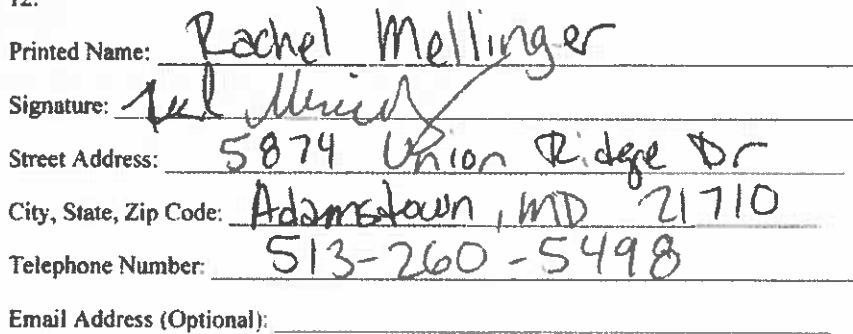 12.
Printed Name: Rachel Mellinger
Signature:
Street Address: 5874 Union Ridge Dr
City, State, Zip Code: Adamstown, MD 21710
Telephone Number: 513-260-5498
Email Address (Optional):